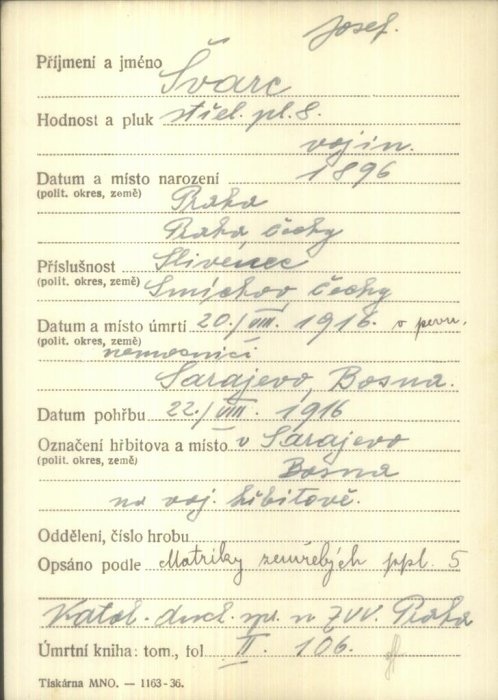 Josef.
Příjmení a jméno Švarc
Hodnost a pluk střel. pl. 8.
vojín.
Datum a místo narození 1896
(polit. okres, země) Praha
Praha Čechy
Příslušnost Slivenec
(polit. okres, země) Smíchov, Čechy
Datum a místo úmrtí 20./VIII. 1916. v pevn.
(polit. okres, země) nemocnici
Sarajevo, Bosna.
Datum pohřbu 22./VIII. 1916
Označení hřbitova a místo v Sarajevo
(polit. okres, země) Bosna
na voj. hřbitově.
Oddělení, číslo hrobu
Opsáno podle Matriky zemřelých ppl. 5
Katol. duch. spr. ZVV. Praha
Úmrtní kniha: tom., fol II. 106.
Tiskárna MNO. — 1163-36.